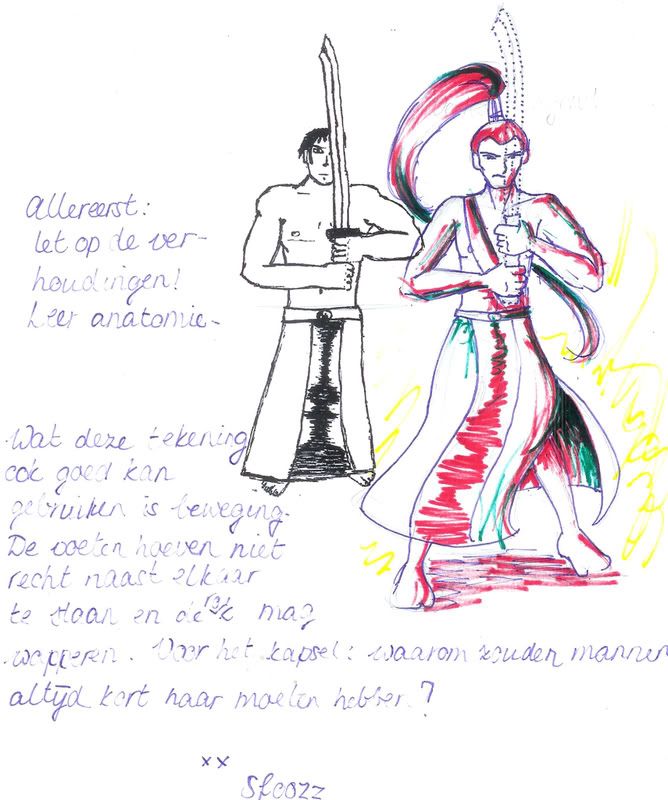 Allereerst:
let op de ver-
houdingen!
Leer anatomie.
Wat deze tekening
ook goed kan
gebruiken is beweging.
De voeten hoeven niet
recht naast elkaar
te staan en de rok mag
wapperen. Voor het kapsel: waarom zouden mannen
altijd kort haar moeten hebben?
xx